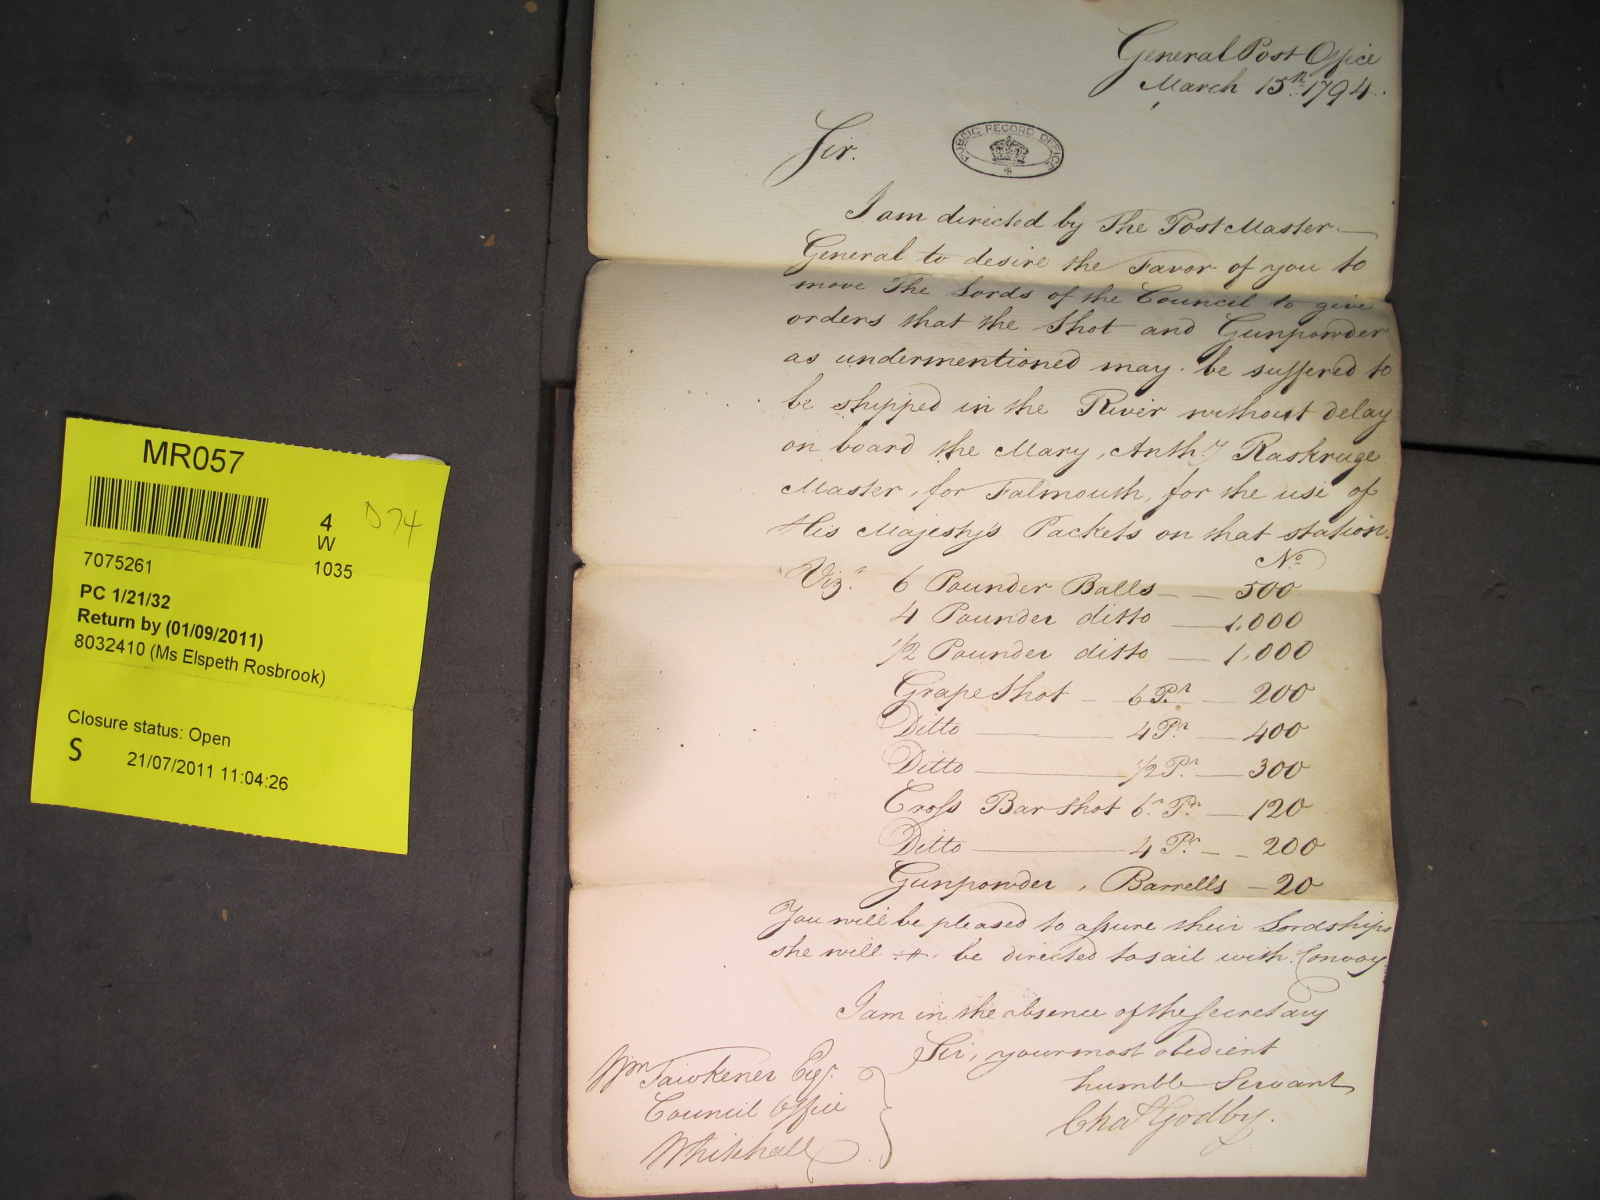 General Post Office
March 15th 1794.
PUBLIC RECORD OFFICE
Sir.
I am directed by The Post Master
General to desire the Favor of you to
move The Lords of the Council to give
orders that the Shot and Gunpowder
as undermentioned may be suffered to
be shipped in the River without delay
on board the Mary, Anthy Raskruge
Master, for Falmouth, for the use of
His Majesty's Packets on that station.
No
Vizt. 6 Pounder Balls — — 500
4 Pounder ditto — 1,000
1/2 Pounder ditto — 1,000
Grape Shot — 6 Pr — 200
Ditto — 4 Pr — 400
Ditto — 1/2 Pr — 300
Cross Bar shot 6 Pr — 120
Ditto — 4 Pr — 200
Gunpowder, Barrells — 20
You will be pleased to assure their Lordships
she will be directed to sail with Convoy.
I am in the absence of the Secretary
Sir, your most obedient
humble Servant
Chas Godby.
Wm Fawkener Esqr.
Council Office
Whitehall
MR057
D74
4
W
7075261 1035
PC 1/21/32
Return by (01/09/2011)
8032410 (Ms Elspeth Rosbrook)
Closure status: Open
S 21/07/2011 11:04:26